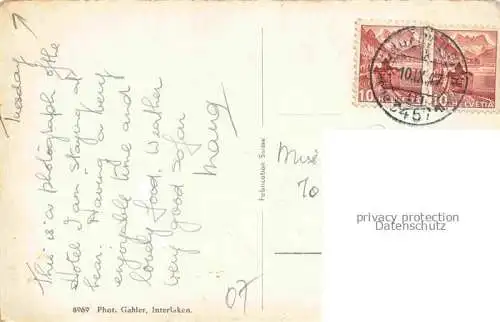 Tuesday
This is a photograph of the
Hotel I am staying at
hear. Having a very
enjoyable time and
lovely food. Weather
very good so far
8969 Phot. Gabler, Interlaken.
07
Fabrication Suisse
10 HELVETIA
10 HELVETIA
10.IX.
privacy protection
www.oldthing.de